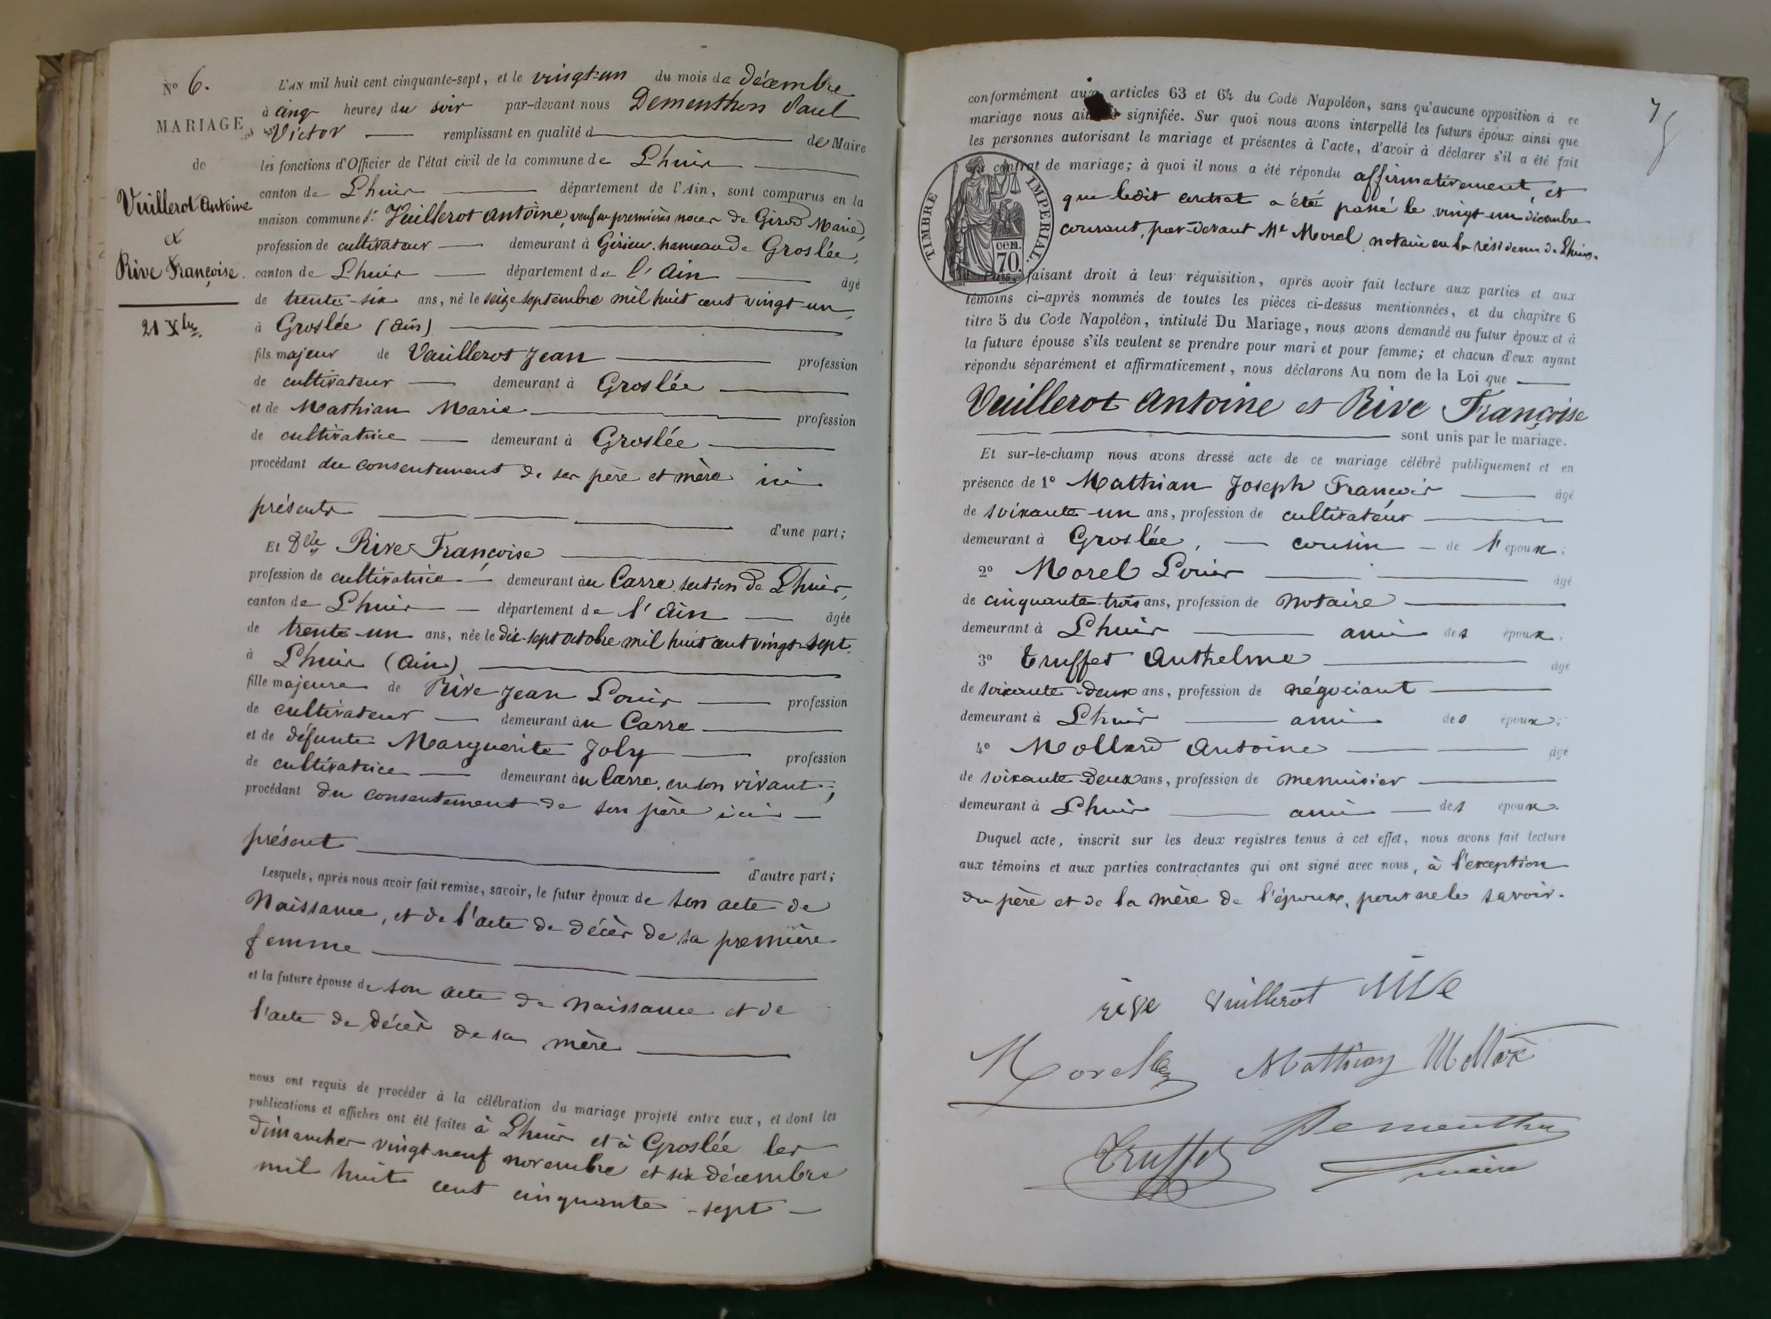 N° 6.
MARIAGE
de
Vuillerot Antoine
&
Rive Françoise.
21 Xbre.
L'AN mil huit cent cinquante-sept, et le vingt-un du mois de décembre
à cinq heures du soir par-devant nous Dementhon Paul
Victor remplissant en qualité d de Maire
les fonctions d'Officier de l'état civil de la commune de Lhuis
canton de Lhuis département de l'Ain, sont comparus en la
maison commune Sr. Vuillerot Antoine, veuf en premières noces de Girod Marie,
profession de cultivateur demeurant à Gérieu, hameau de Groslée,
canton de Lhuis département de l'Ain âgé
de trente-six ans, né le seize septembre mil huit cent vingt un,
à Groslée (Ain)
fils majeur de Vuillerot Jean profession
de cultivateur demeurant à Groslée
et de Mathian Marie profession
de cultivatrice demeurant à Groslée
procédant du consentement de ses père et mère ici
présents d'une part;
Et Dlle Rive Françoise
profession de cultivatrice demeurant au Carre section de Lhuis,
canton de Lhuis département de l'Ain âgée
de trente-un ans, née le dix-sept octobre mil huit cent vingt-sept
à Lhuis (Ain)
fille majeure de Rive Jean Louis profession
de cultivateur demeurant au Carre
et de défunte Marguerite Joly profession
de cultivatrice demeurant au Carre, en son vivant;
procédant du consentement de son père ici
présent d'autre part;
Lesquels, après nous avoir fait remise, savoir, le futur époux de son acte de
Naissance, et de l'acte de décès de sa première
femme
et la future épouse de son acte de Naissance et de
l'acte de décès de sa mère
nous ont requis de procéder à la célébration du mariage projeté entre eux, et dont les
publications et affiches ont été faites à Lhuis et à Groslée les
dimanches vingt neuf novembre et six décembre
mil huit cent cinquante-sept
7
conformément aux articles 63 et 64 du Code Napoléon, sans qu'aucune opposition à ce
mariage nous ait signifiée. Sur quoi nous avons interpellé les futurs époux ainsi que
les personnes autorisant le mariage et présentes à l'acte, d'avoir à déclarer s'il a été fait
contrat de mariage; à quoi il nous a été répondu affirmativement, et
que ledit contrat a été passé le vingt un décembre
courant, par-devant Me Morel, notaire en la résidence de Lhuis.
TIMBRE IMPERIAL
CEN.
70.
faisant droit à leur réquisition, après avoir fait lecture aux parties et aux
témoins ci-après nommés de toutes les pièces ci-dessus mentionnées, et du chapitre 6
titre 5 du Code Napoléon, intitulé Du Mariage, nous avons demandé au futur époux et à
la future épouse s'ils veulent se prendre pour mari et pour femme; et chacun d'eux ayant
répondu séparément et affirmativement, nous déclarons Au nom de la Loi que
Vuillerot Antoine et Rive Françoise
sont unis par le mariage.
Et sur-le-champ nous avons dressé acte de ce mariage célébré publiquement et en
présence de 1° Mathian Joseph François âgé
de soixante-un ans, profession de cultivateur
demeurant à Groslée, cousin de l'époux;
2° Morel Louis âgé
de cinquante-trois ans, profession de notaire
demeurant à Lhuis ami des époux;
3° Truffet Anthelme âgé
de soixante-deux ans, profession de négociant
demeurant à Lhuis ami des époux;
4° Mollard Antoine âgé
de soixante-deux ans, profession de menuisier
demeurant à Lhuis ami des époux.
Duquel acte, inscrit sur les deux registres tenus à cet effet, nous avons fait lecture
aux témoins et aux parties contractantes qui ont signé avec nous, à l'exception
du père et de la mère de l'époux, pour ne le savoir.
rive Vuillerot Rive
Morel Mathian Mollard
Truffet Dementhon
maire